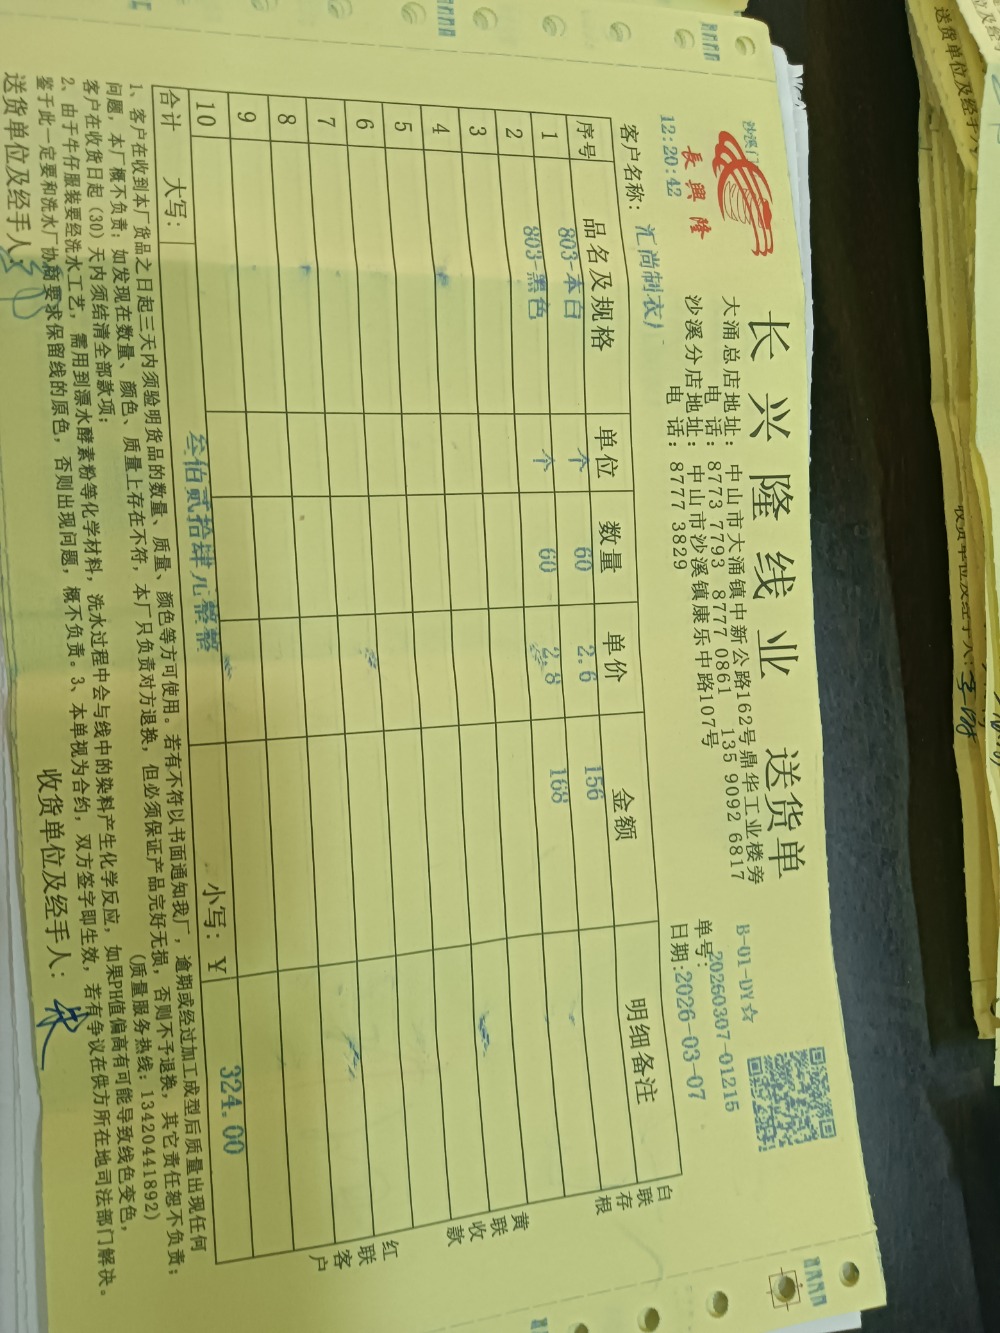 沙溪门
長興隆
12:20:42
长兴隆线业 送货单
大涌总店地址: 中山市大涌镇中新公路162号鼎华工业楼旁
电 话: 8773 7793 8777 0861 135 9092 6817
沙溪分店地址: 中山市沙溪镇康乐中路107号
电 话: 8777 3829
B-01-DY☆
单号:20260307-01215
日期:2026-03-07
客户名称: 汇尚制衣厂
序号 品名及规格 单位 数量 单价 金额 明细备注
1 803-本白 个 60 2.6 156
2 803-黑色 个 60 2.8 168
3
4
5
6
7
8
9
10
合计 大写: 叁佰贰拾肆元整 小写: ¥ 324.00
白联存根
黄联收款
红联客户
1、客户在收到本厂货品之日起三天内须验明货品的数量、质量、颜色等方可使用。若有不符以书面通知我厂，逾期或经过加工成型后质量出现任何
问题，本厂概不负责；如发现在数量、颜色、质量上存在不符，本厂只负责对方退换，但必须保证产品完好无损，否则不予退换，其它责任恕不负责；
客户在收货日起（30）天内须结清全部款项； (质量服务热线: 13420441892)
2、由于牛仔服装要经洗水工艺，需用到漂水酵素粉等化学材料，洗水过程中会与线中的染料产生化学反应，如果PH值偏高有可能导致线色变色，
鉴于此一定要和洗水厂协商要求保留线的原色，否则出现问题，概不负责。3、本单视为合约，双方签字即生效，若有争议在供方所在地司法部门解决。
送货单位及经手人:
收货单位及经手人: 朱
送货单位及经手人
收货单位及经手人: